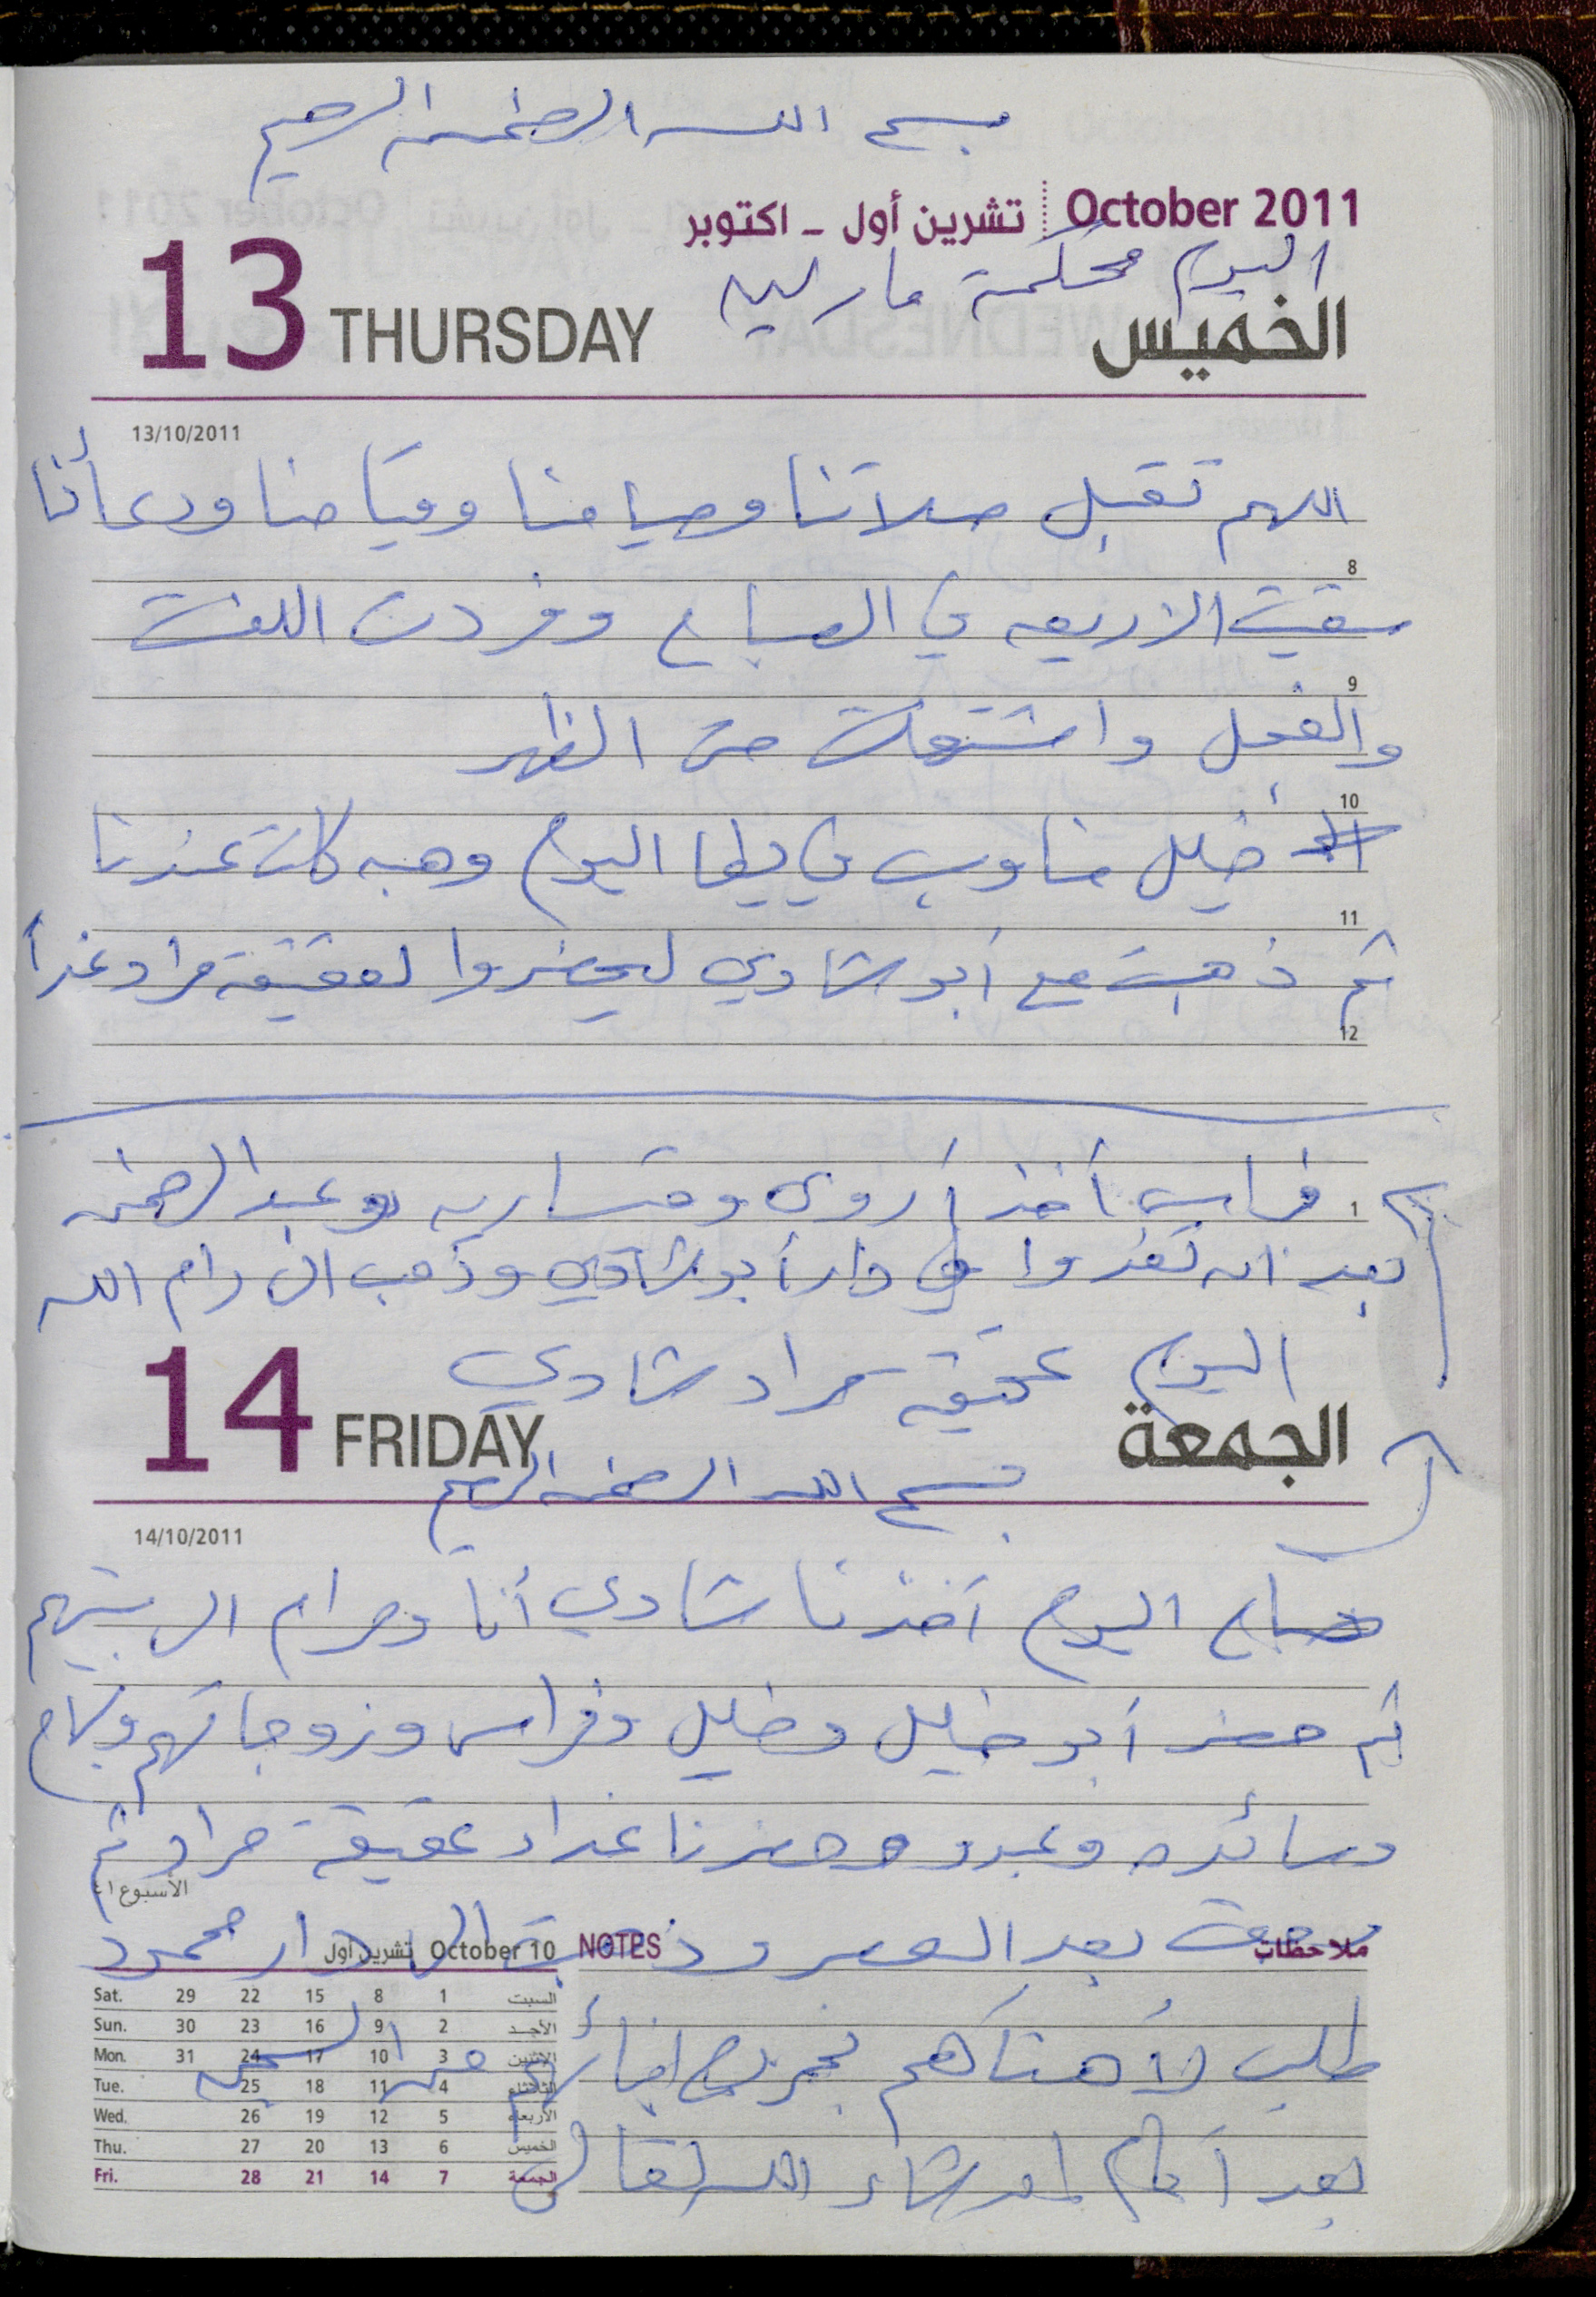 بسم الله الرحمن الرحيم
October 2011 تشرين أول - اكتوبر
اليوم محكمة مارلين
13 THURSDAY الخميس
13/10/2011
اللهم تقبل صلاتنا وصيامنا وقيامنا ودعأنا
8
سقيت الزريعه في الصباح وفردت اللفت
9
والفجل واشتغلت من الظهر
10
خليل مناوب في يطا اليوم وهبه كانت عندنا
11
ثم ذهبت مع أبو شادي ليحضروا لعقيقة مراد غداً
12
1 فراس أخذ أروى وقسا وعبد الرحمن
بعد ان تغدوا في دار أبو شادي وذهب الى رام الله
اليوم عقيقه مراد شادي
14 FRIDAY الجمعة
بسم الله الرحمن الرحيم
14/10/2011
صباح اليوم أخذنا شادي أنا ومرام الى بيتهم
ثم حضر أبو خليل وخليل وفراس وزوجاتهم
وسائده وعبدو وحضرنا غداء عقيقة مراد ثم
الأسبوع ٤١
رجعت بعد العصر وذهبت الى دار محمود
ملاحظات NOTES
October 10 تشرين أول
طلب لأهنأهم بخروج ابنائهم من السجن
بعد أيام إن شاء الله تعالى
Sat. 29 22 15 8 1 السبت
Sun. 30 23 16 9 2 الأحد
Mon. 31 24 17 10 3 الاثنين
Tue. 25 18 11 4 الثلاثاء
Wed. 26 19 12 5 الأربعاء
Thu. 27 20 13 6 الخميس
Fri. 28 21 14 7 الجمعة